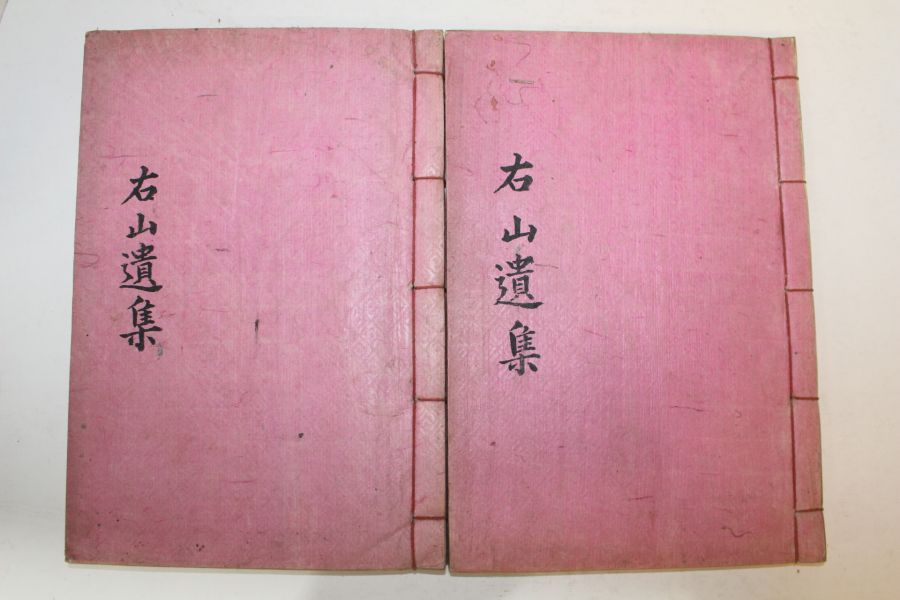 右山遺集
右山遺集